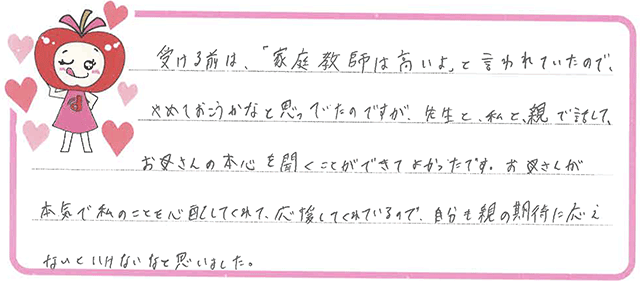 受ける前は、「家庭教師は高いよ」と言われていたので、
やめておこうかなと思っていたのですが、先生と、私と、親で話して、
お母さんの本心を聞くことができてよかったです。お母さんが
本気で私のことを心配してくれて、応援してくれているので、自分も親の期待に応え
ないといけないなと思いました。